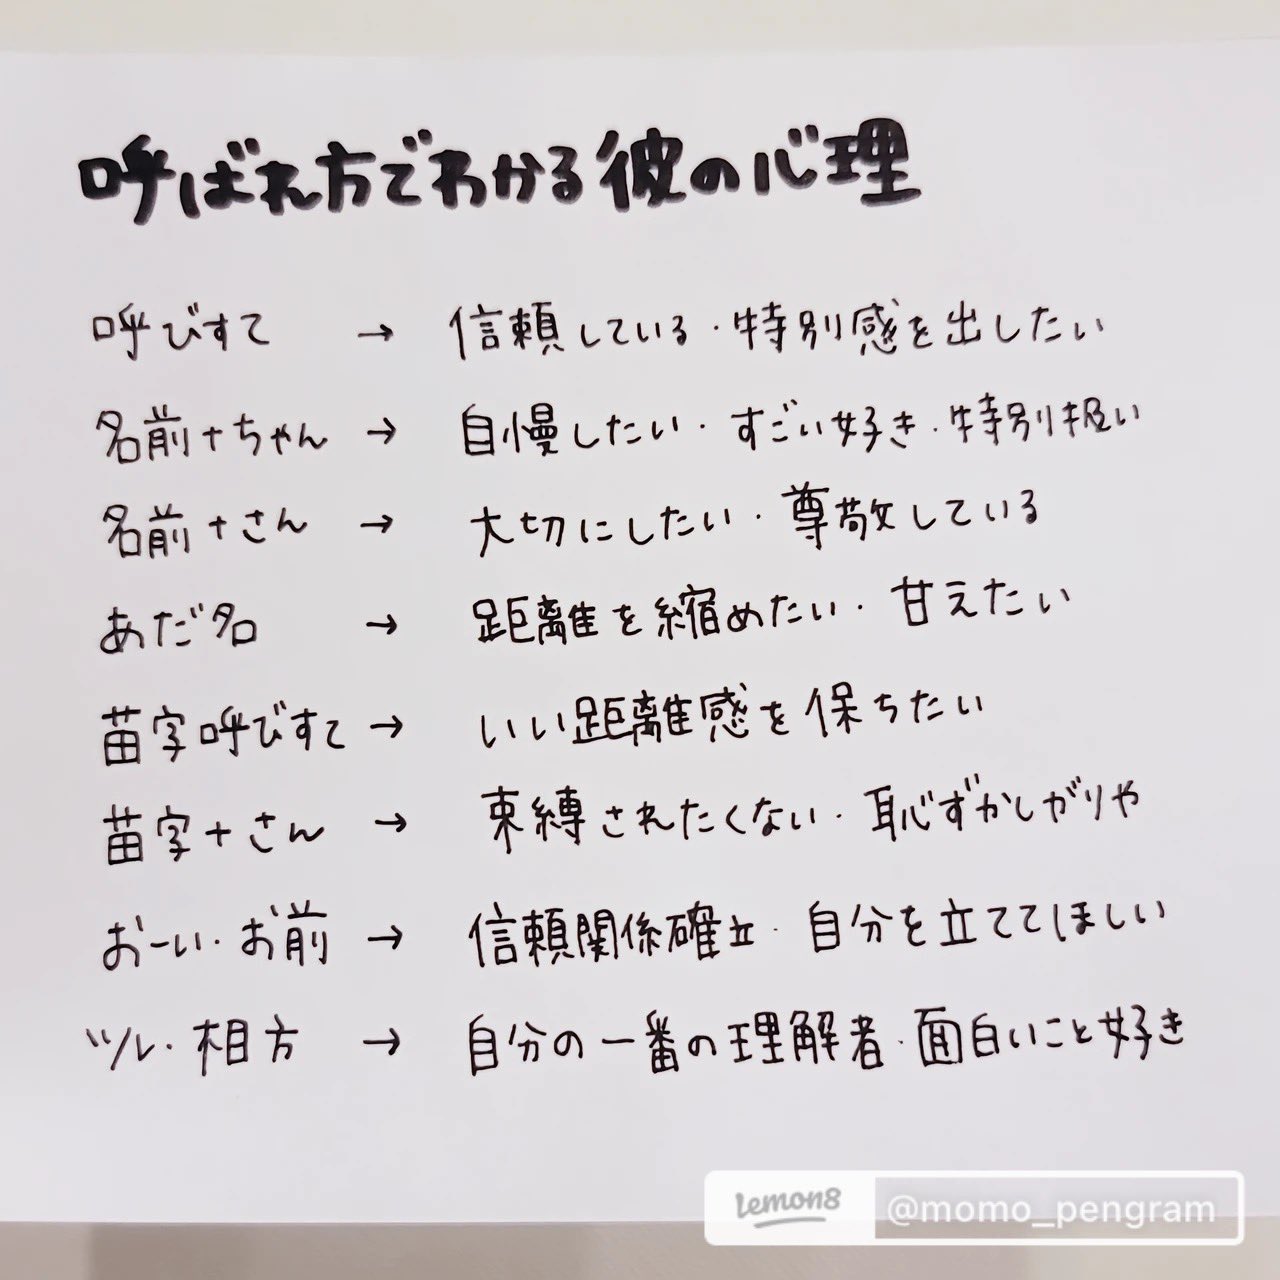 呼ばれ方でわかる彼の心理
呼びすて → 信頼している・特別感を出したい
名前+ちゃん → 自慢したい・すごい好き・特別扱い
名前+さん → 大切にしたい・尊敬している
あだ名 → 距離を縮めたい・甘えたい
苗字呼びすて → いい距離感を保ちたい
苗字+さん → 束縛されたくない・恥ずかしがりや
おーい・お前 → 信頼関係確立・自分を立ててほしい
ツレ・相方 → 自分の一番の理解者・面白いこと好き
Lemon8 @momo_pengram